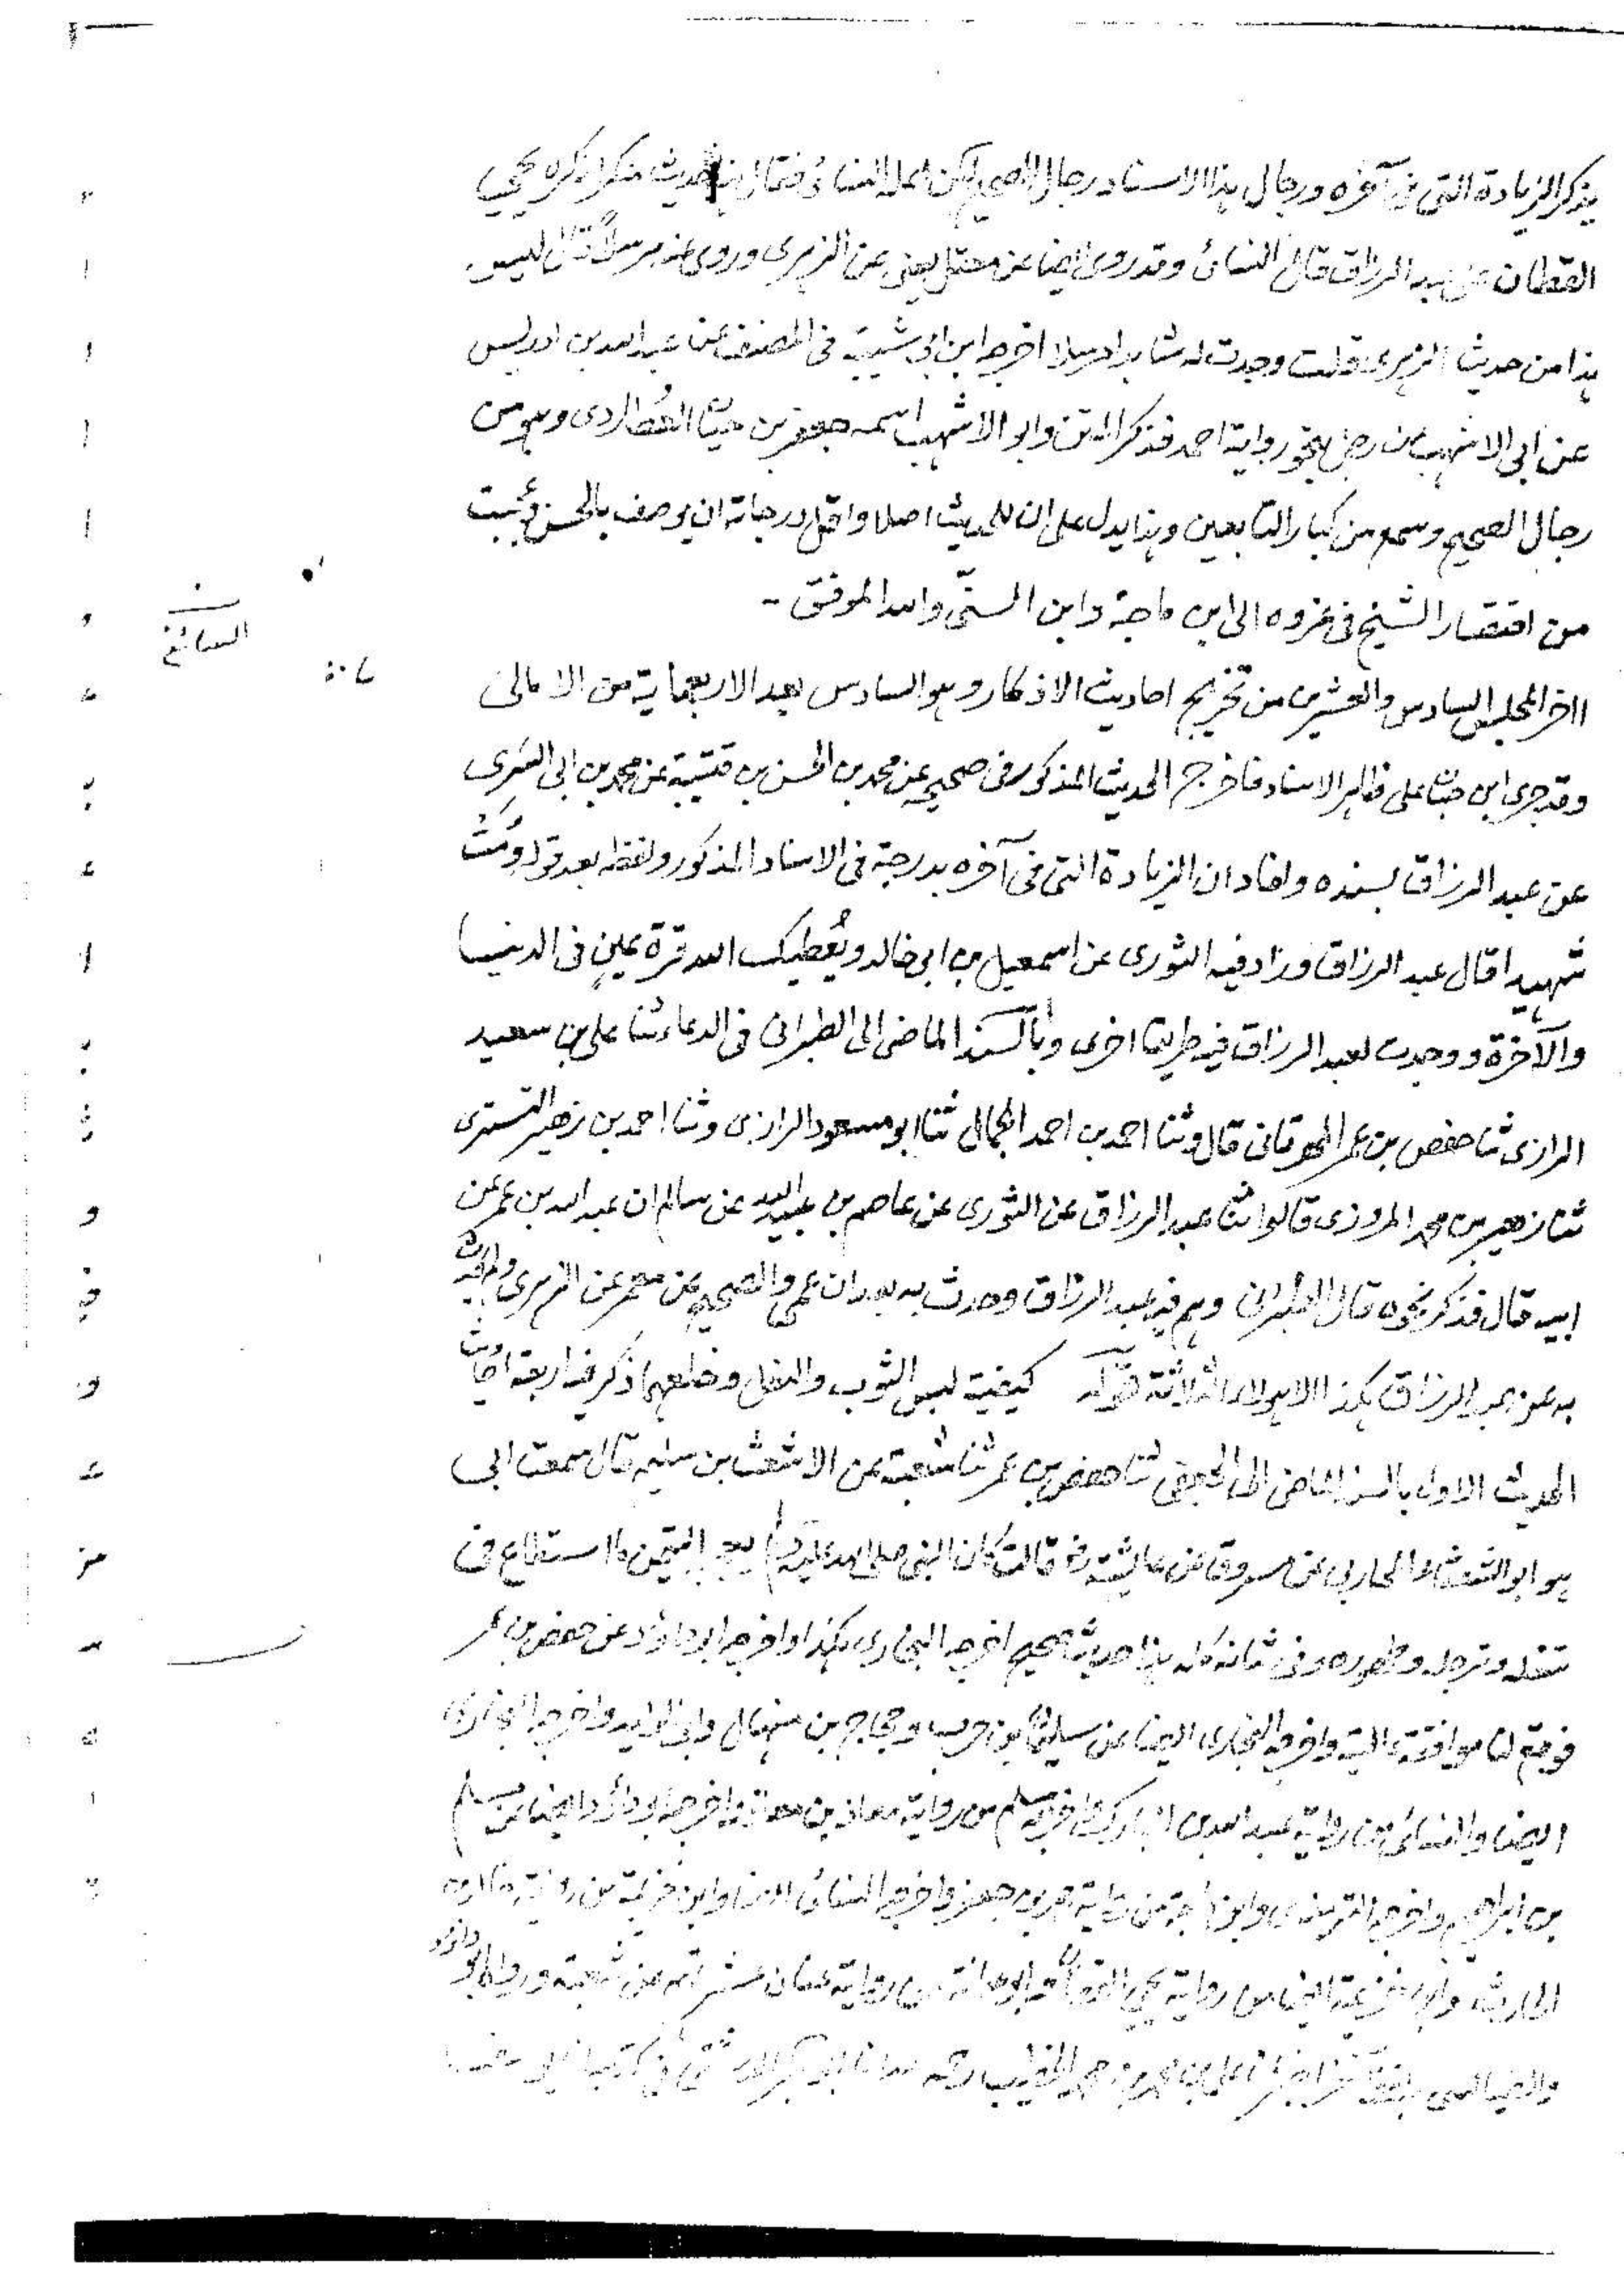 يذكر الزيادة التي في آخره ورجال هذا الاسناد رجال الصحيح لكن اعله النسائى فقال هذا حديث منكر انكره يحيى
القطان على عبد الرزاق قال النسائى وقد روى ايضا عن معقل يعنى عن الزهرى وروى عنه مرسلاً قال ليس
هذا من حديث الزهرى قلت وجدت له شاهدا مرسلا اخرجه ابن ابى شيبة فى المصنف عن عبد الله بن ادريس
عن ابى الاشهب عن رجل بنحو رواية احمد فذكر المتن وابو الاشهب اسمه جعفر بن حيان العُطاردى وهو من
رجال الصحيح وسمع من كبار التابعين وهذا يدل على ان للحديث اصلا واقل درجاته ان يوصف بالحسن وعجبت
من اقتصار الشيخ فى عزوه الى ابن ماجة وابن السنّى والله الموفق -
السابع
اخر المجلس السادس والعشرين من تخريج احاديث الاذكار وهو السادس بعد الاربعماية من الامالى
وقد جرى ابن حبان على ظاهر الاسناد فاخرج الحديث المذكور فى صحيحه عن محمد بن الحسن بن قتيبة عن محمد بن ابى السَرى
عن عبد الرزاق بسنده وافاد ان الزيادة التى فى آخره مدرجة فى الاسناد المذكور ولفظه بعد قوله ومُت
شهيدا قال عبد الرزاق وزاد فيه الثورى عن اسمعيل بن ابى خالد ويُعطيك الله قرة عينٍ فى الدنيا
والآخرة ووجدت لعبد الرزاق فيه طريقا اخرى وبالسند الماضى الى الطبرانى فى الدعاء ثنا على بن سعيد
الرازى ثنا حفص بن عمر المهرقانى قال وثنا احمد بن احمد الجمال ثنا ابو مسعود الرازى وثنا احمد بن زهير التسترى
ثنا زهير بن محمد المروزى قالوا ثنا عبد الرزاق عن الثورى عن عاصم بن عبيد الله عن سالم ان عبد الله بن عمر عن
ابيه قال فذكر نحوه قال الطبرانى وهم فيه عبد الرزاق وحدث به بعد ان عمى والصحيح عن معمر عن الزهرى
به عن عبد الرزاق هكذا الا هولاء الثلاثة قوله كيفية لبس الثوب والنعل وخلعهما ذكر فيه اربعة احاديث
الحديث الاول بالسند الماضى الى ثنا حفص بن عمر ثنا شعبة عن الاشعث بن سليم قال سمعت ابى
هو ابو الشعثاء المحاربى عن مسروق عن عايشة رض قالت كان النبى صلى الله عليه وسلم يعجبه التيمن ما استطاع فى
تنعله وترجله وطهوره وفى شانه كله هذا حديث صحيح اخرجه البخارى هكذا واخرجه ابو داؤد عن حفص بن عمر
فوقع لنا موافقة عالية واخرجه البخارى ايضا عن سليمان بن حرب وحجاج بن منهال وابى الوليد واخرجه البخارى
ايضا والنسائى من رواية عبد الله بن المبارك واخرجه مسلم من رواية معاذ بن معاذ واخرجه ابو داؤد ايضا عن مسلم
بن ابراهيم واخرجه الترمذى وابن ماجة من رواية محمد بن جعفر واخرجه النسائى ايضا وابن خزيمة من رواية خالد بن
الحارث وابن خزيمة ايضا من رواية يحيى القطان وابو عوانة من رواية عفان عشرتهم عن شعبة ورواه ابو داؤد